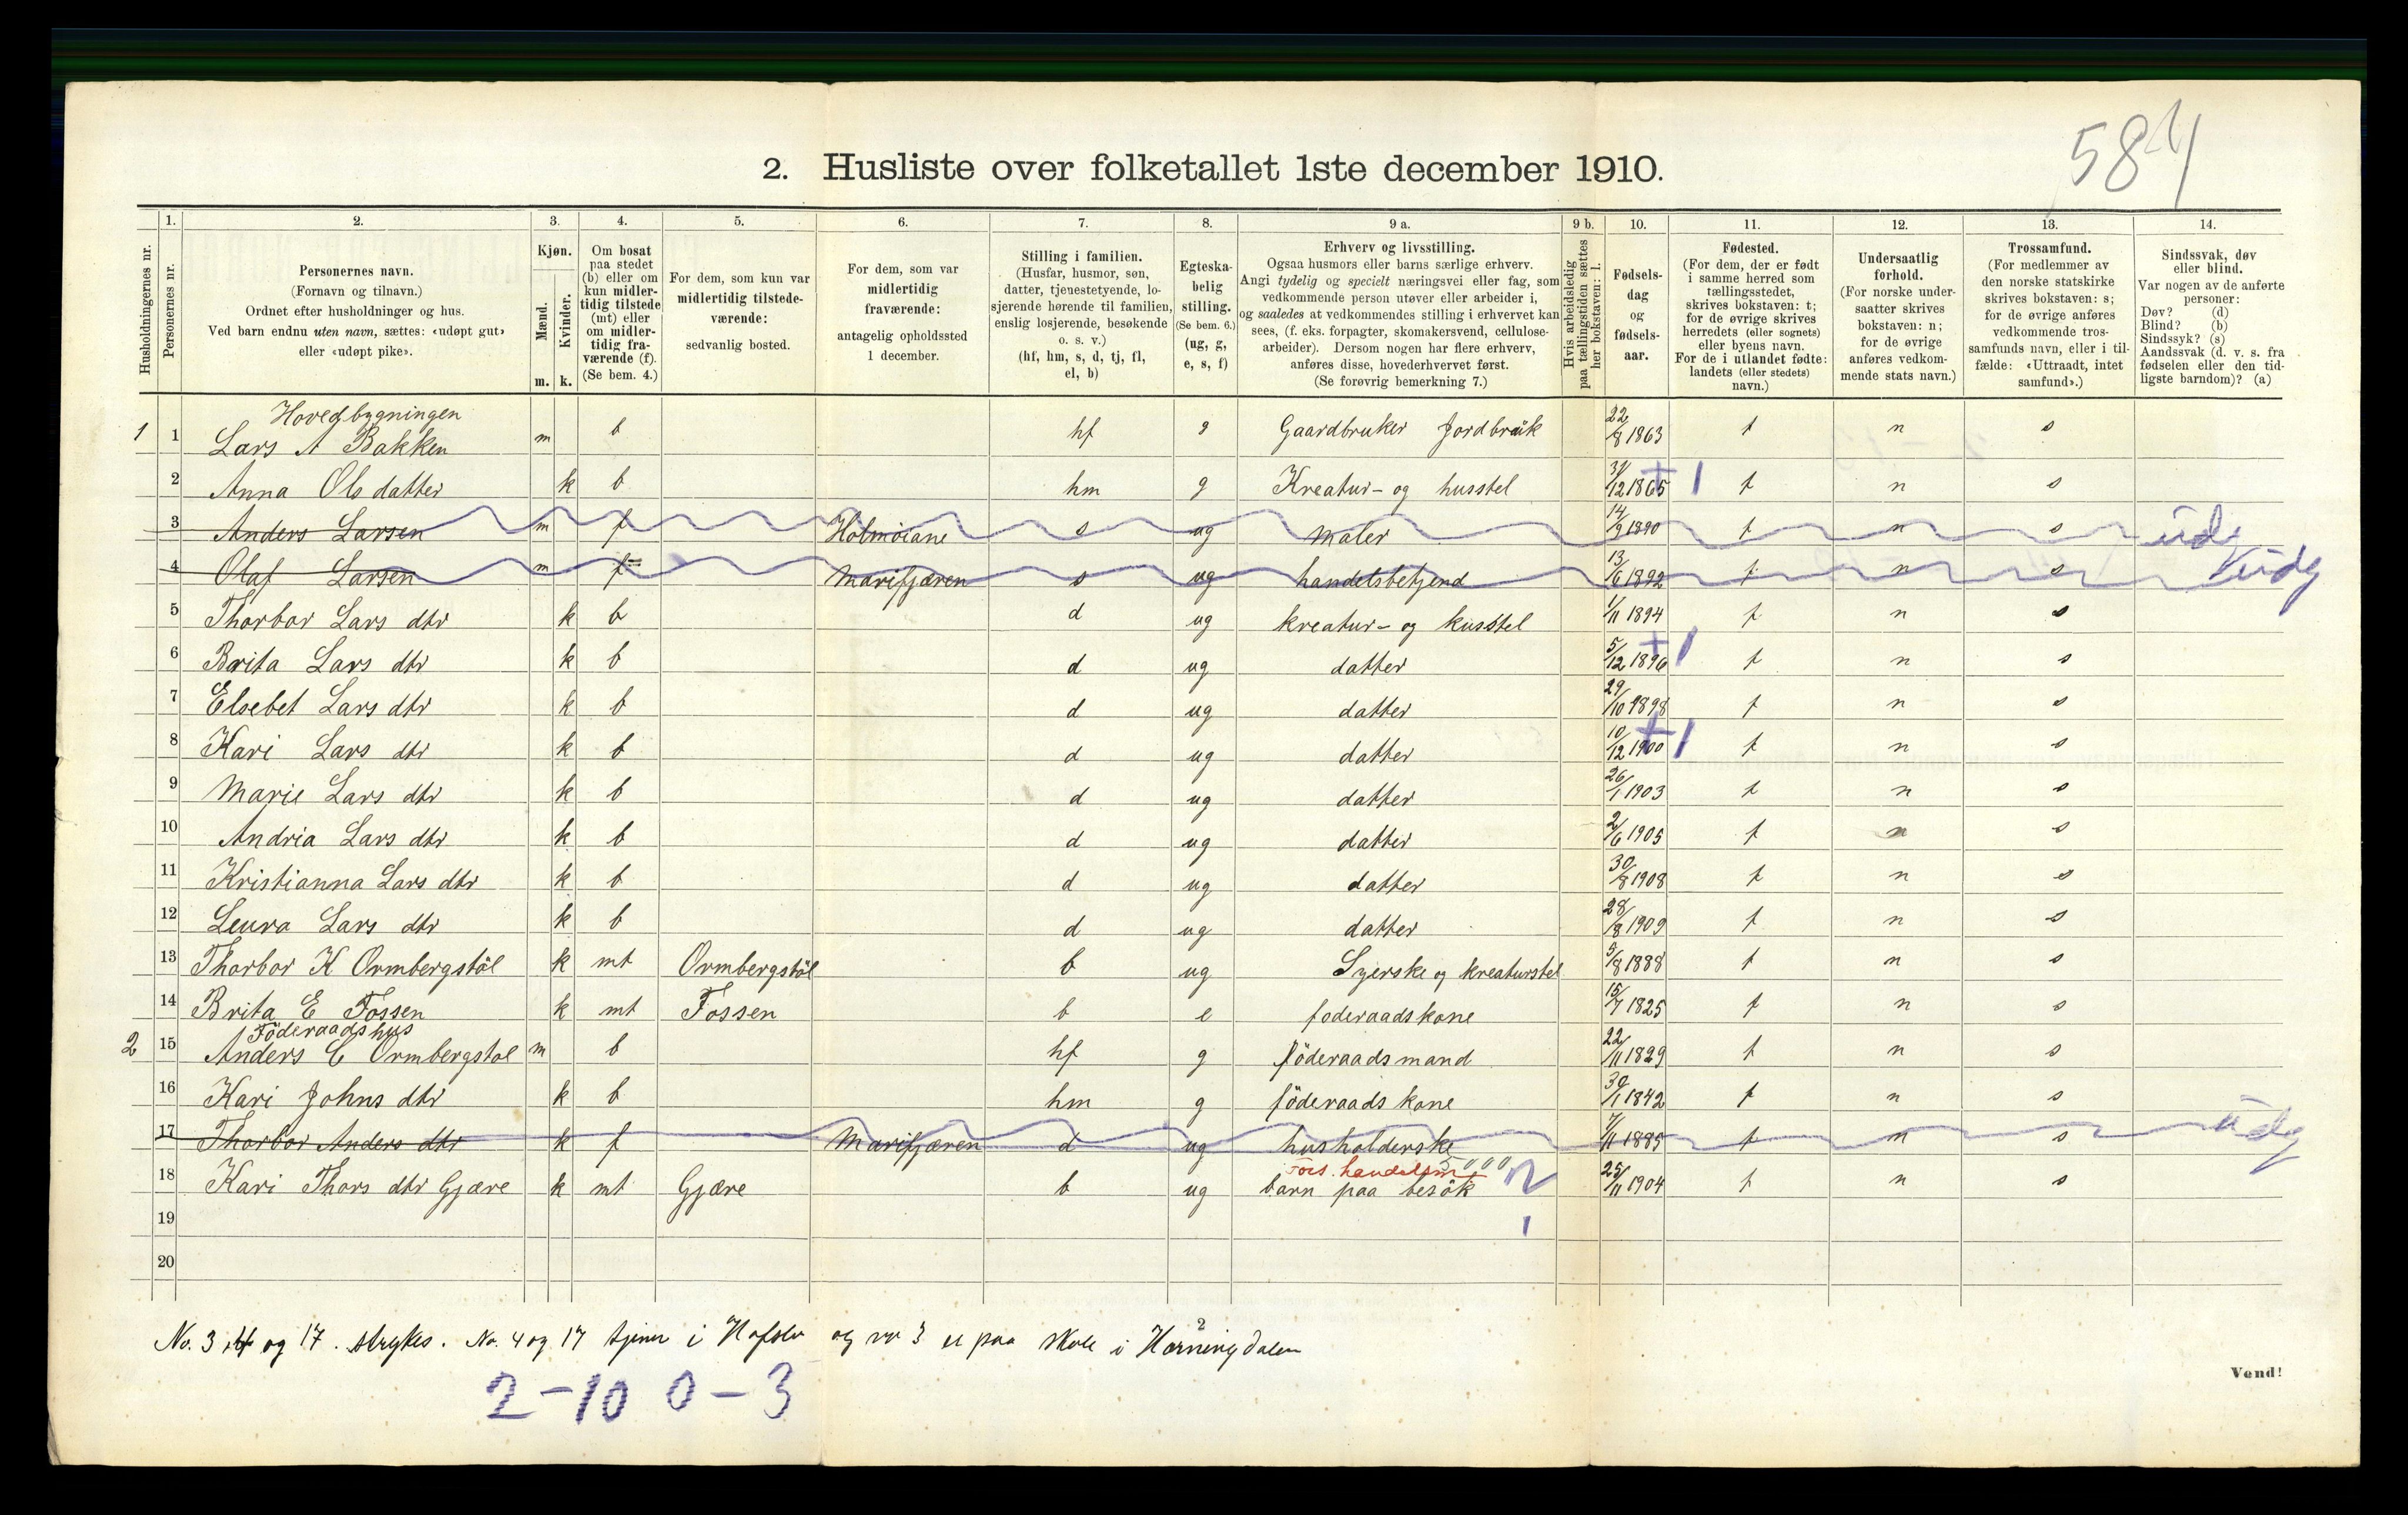 584
2. Husliste over folketallet 1ste december 1910.
Husholdningernes nr.
1. Personernes nr.
2. Personernes navn. (Fornavn og tilnavn.) Ordnet efter husholdninger og hus. Ved barn endnu uten navn, sættes: «udøpt gut» eller «udøpt pike».
3. Kjøn. Mænd. m. Kvinder. k.
4. Om bosat paa stedet (b) eller om kun midlertidig tilstede (mt) eller om midlertidig fraværende (f). (Se bem. 4.)
5. For dem, som kun var midlertidig tilstedeværende: sedvanlig bosted.
6. For dem, som var midlertidig fraværende: antagelig opholdssted 1 december.
7. Stilling i familien. (Husfar, husmor, søn, datter, tjenestetyende, losjerende hørende til familien, enslig losjerende, besøkende o. s. v.) (hf, hm, s, d, tj, fl, el, b)
8. Egteskabelig stilling. (Se bem. 6.) (ug, g, e, s, f)
9 a. Erhverv og livsstilling. Ogsaa husmors eller barns særlige erhverv. Angi tydelig og specielt næringsvei eller fag, som vedkommende person utøver eller arbeider i, og saaledes at vedkommendes stilling i erhvervet kan sees, (f. eks. forpagter, skomakersvend, cellulosearbeider). Dersom nogen har flere erhverv, anføres disse, hovederhvervet først. (Se forøvrig bemerkning 7.)
9 b. Hvis arbeidsledig paa tællingstiden sættes her bokstaven: l.
10. Fødselsdag og fødselsaar.
11. Fødested. (For dem, der er født i samme herred som tællingsstedet, skrives bokstaven: t; for de øvrige skrives herredets (eller sognets) eller byens navn. For de i utlandet fødte: landets (eller stedets) navn.)
12. Undersaatlig forhold. (For norske undersaatter skrives bokstaven: n; for de øvrige anføres vedkommende stats navn.)
13. Trossamfund. (For medlemmer av den norske statskirke skrives bokstaven: s; for de øvrige anføres vedkommende trossamfunds navn, eller i tilfælde: «Uttraadt, intet samfund».)
14. Sindssvak, døv eller blind. Var nogen av de anførte personer: Døv? (d) Blind? (b) Sindssyk? (s) Aandssvak (d. v. s. fra fødselen eller den tidligste barndom)? (a)
Hovedbygningen
1 1 Lars A Bakken m b hf g Gaardbruker Jordbruk 22/8 1863 t n s
2 Anna Ols datter k b hm g Kreatur- og husstel 31/12 1865 + 1 t n s
3 Anders Larsen m f Holmöiane s ug maler 14/9 1890 t n s udg
4 Olaf Larsen m f Marifjæren s ug handelsbetjend 13/6 1892 t n s udg
5 Thorbor Lars dtr k b d ug kreatur- og husstel 1/11 1894 t n s
6 Brita Lars dtr k b d ug datter 5/12 1896 + 1 t n s
7 Elsebet Lars dtr k b d ug datter 29/10 1898 t n s
8 Kari Lars dtr k b d ug datter 10/12 1900 + 1 t n s
9 Marie Lars dtr k b d ug datter 26/1 1903 t n s
10 Andria Lars dtr k b d ug datter 2/6 1905 t n s
11 Kristianna Lars dtr k b d ug datter 30/8 1908 t n s
12 Leura Lars dtr k b d ug datter 28/8 1909 t n s
13 Thorbor K Ormbergstöl k mt Ormbergstöl b ug Syerske og kreaturstel 5/8 1888 t n s
14 Brita E Fossen k mt Fossen b e foderaadskone 15/7 1825 t n s
Föderaadshus
2 15 Anders C Ormbergstol m b hf g föderaadsmand 22/11 1829 t n s
16 Kari Johns dtr k b hm g föderaads kone 30/1 1842 t n s
17 Thorbor Anders dtr k f Marifjæren d ug husholderske 1885 t n s udg
18 Kari Thors dtr Gjære k mt Gjære b ug barn paa besök 25/11 1904 t n s
19 1
20
No. 3, 4 og 17. strykes. No. 4 og 17 tjener i Hafslo og no 3 er paa skole i Horningdalen
2
2-10 0-3
Vend!